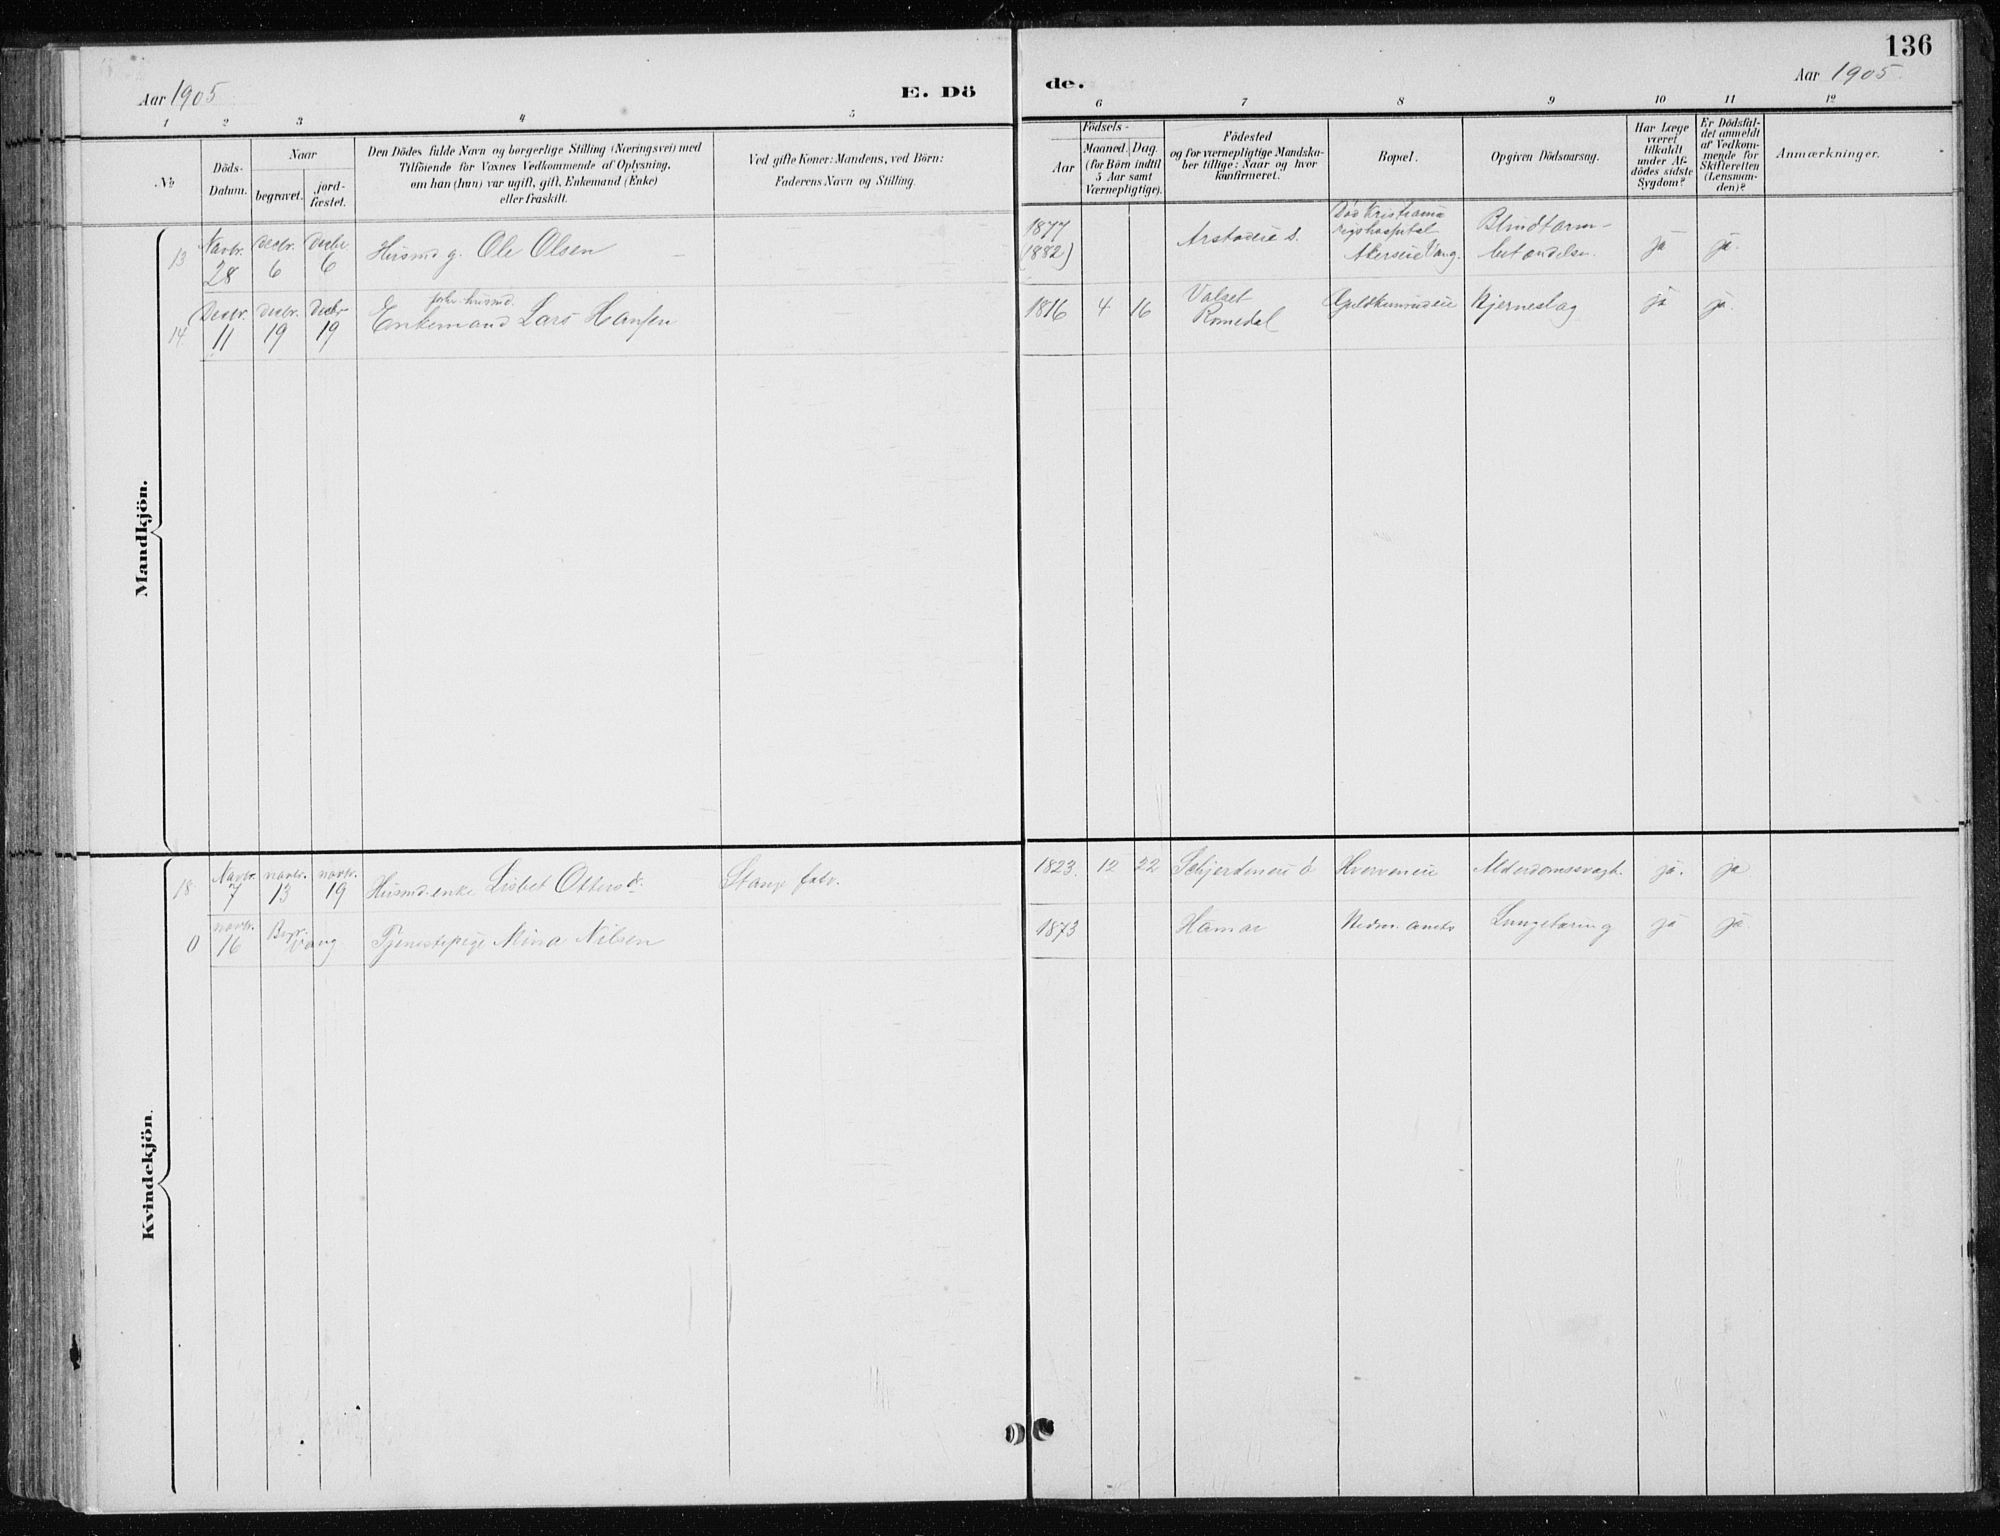 136
Aar 1905
E. Dö
de.
Aar 1905.
1 2 3 4 5 6 7 8 9 10 11 12
No
Döds-
Datum.
Naar
begravet.
jord-
fæstet.
Den Dödes fulde Navn og borgerlige Stilling (Næringsvei) med
Tilföiende for Voxnes Vedkommende af Oplysning,
om han (hun) var ugift, gift, Enkemand (Enke)
eller fraskilt.
Ved gifte Koner: Mandens, ved Börn:
Faderens Navn og Stilling.
Födsels-
Aar
Maaned. Dag.
(for Börn indtil
5 Aar samt
Værnepligtige).
Födested
og for værnepligtige Mandska-
ber tillige: Naar og hvor
konfirmeret.
Bopæl.
Opgiven Dödsaarsag.
Har Læge
været
tilkaldt
under Af-
dödes sidste
Sygdom?
Er Dödsfal-
det anmeldt
af Vedkom-
mende for
Skifteretten
(Lensman-
den)?
Anmærkninger.
Mandkjön.
13 Novbr. 28 Decbr. 6 Decbr. 6 Husmd g. Ole Olsen — 1877 (1882) Død Kristiania rigshospital Akerseie Vang. Blindtarm-betændelse. ja ja.
14 Decbr. 11 Decbr. 19 Decbr. 19 Enkemand forhv. husmd. Lars Hansen 1816 4 16 Valset Romedal Kjerneslag ja ja.
Kvindekjön.
18 Novbr. 7 novbr. 13 novbr. 19 Husmd-enke Lisbet Ottersd. Stange fatv. 1823 12 22 Hverveneie Alderdomssvagh. ja. ja
0 novbr. 16 Begr. Vang Tjenestepige Mina Nilsen 1873 Hamar Hedm. amts Lungetæring ja ja.